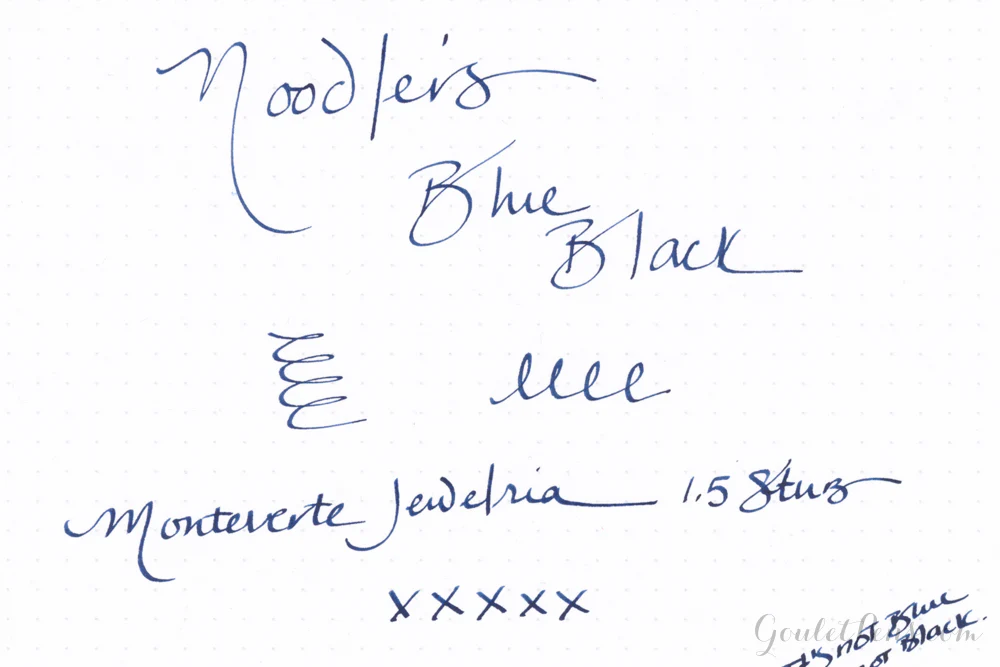 Noodler's
Blue
Black
eeee
Monteverte Jewelria 1.5 Stub
XXXXX
it's not Blue
not Black.
GouletPens.com